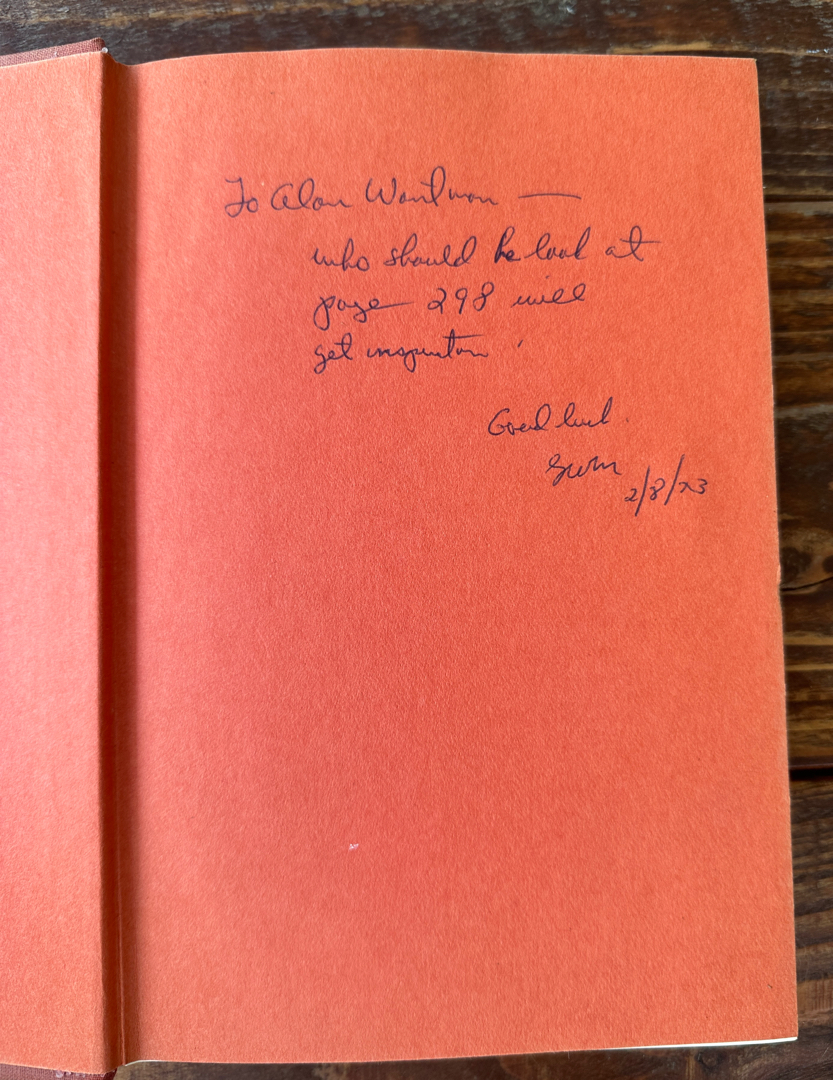 To Alan Wortman —
who should he look at
page 298 will
get inspiration.
Good luck.
2/8/73